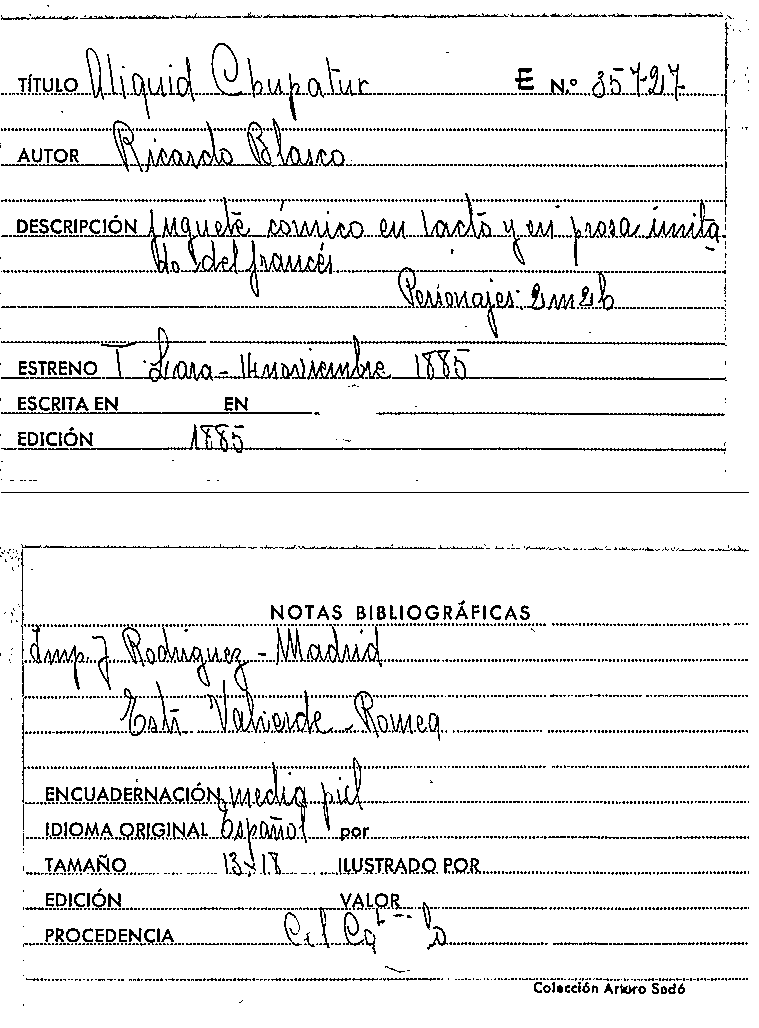 TÍTULO Aliquid Chupatur E N.º 35727
AUTOR Ricardo Blasco
DESCRIPCIÓN Juguete cómico en 1 acto y en prosa imita
do del francés
Personajes: 2m 2h
ESTRENO T. Lara - 14 noviembre 1885
ESCRITA EN EN
EDICIÓN 1885
NOTAS BIBLIOGRÁFICAS
Imp J Rodriguez - Madrid
Estr Valverde - Romea
ENCUADERNACIÓN media piel
IDIOMA ORIGINAL Español por
TAMAÑO 13x18 ILUSTRADO POR
EDICIÓN VALOR
PROCEDENCIA
Colección Arturo Sedó